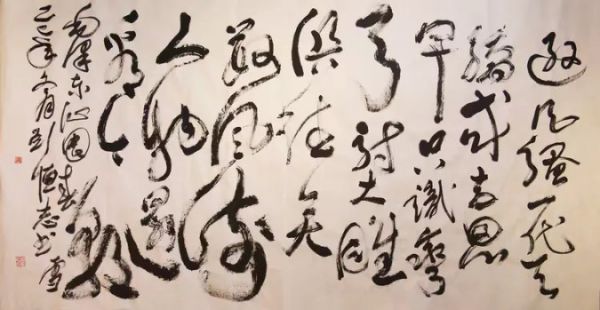 逊风骚一代天
骄成吉思
汗只识弯
弓射大雕
俱往矣
数风流
人物还
看今朝
毛泽东沁园春雪
年 恒志书